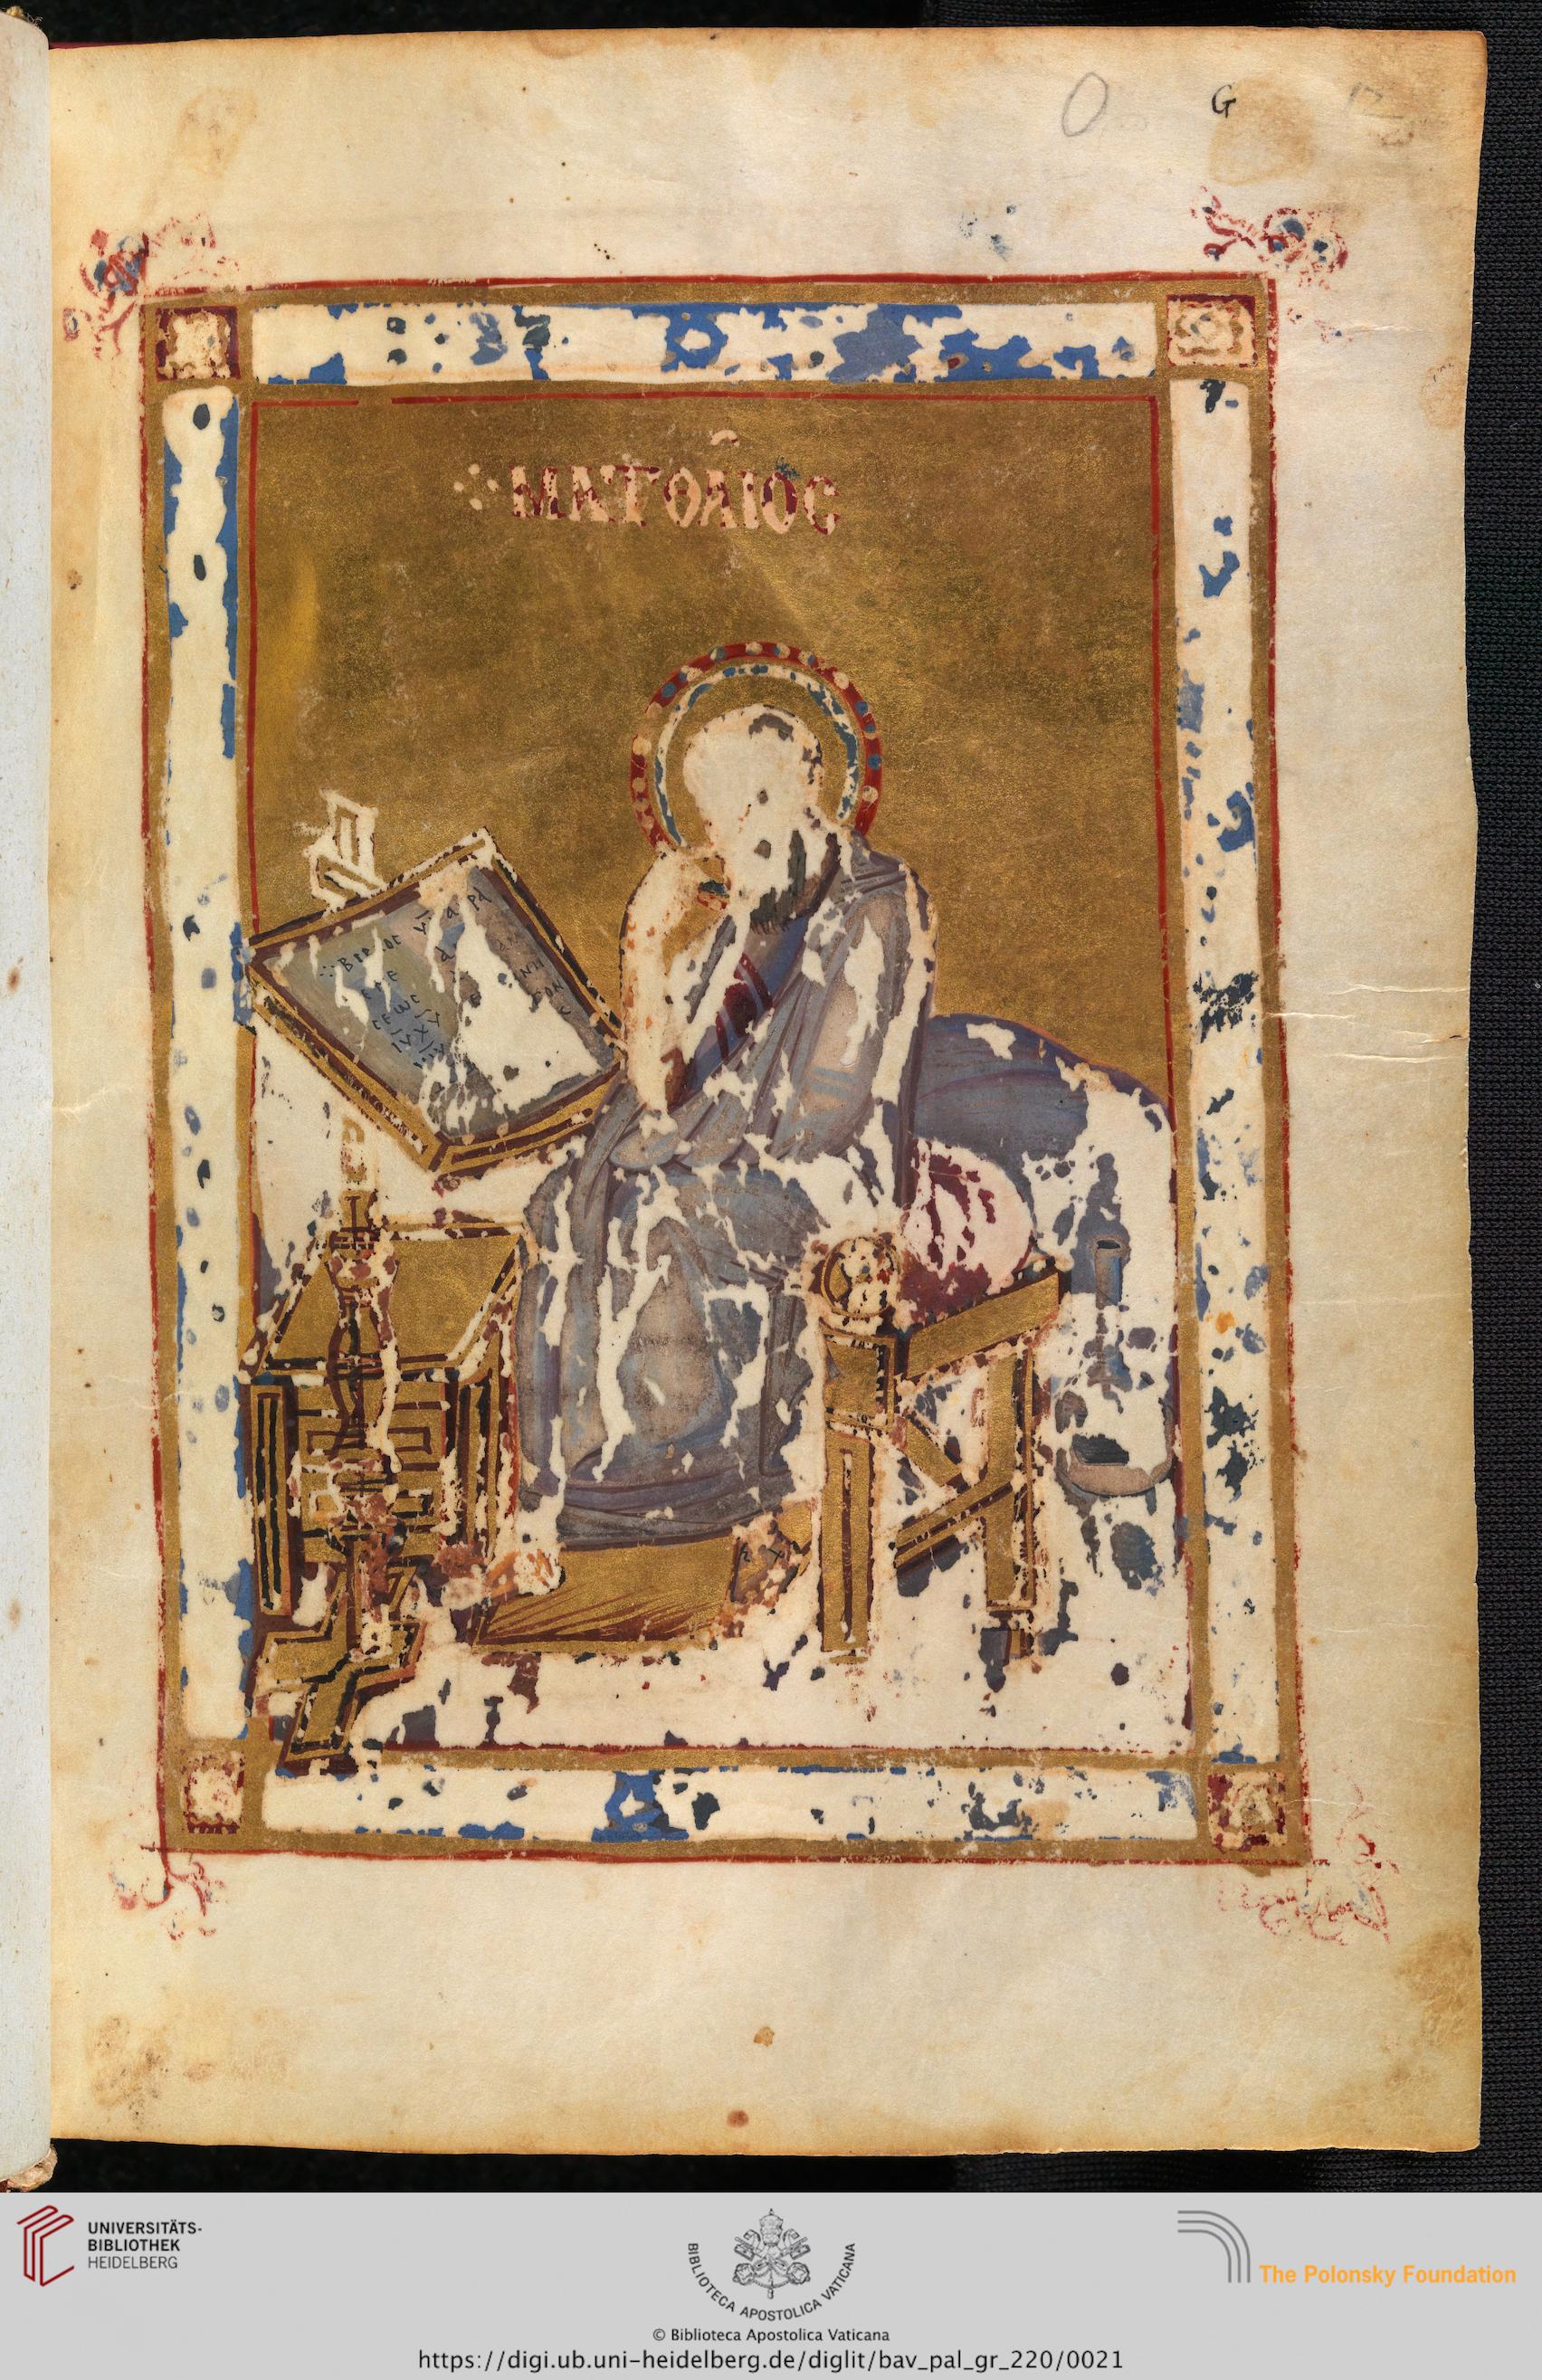 G
ΜΑΤΘΑΙΟϹ
ΓΕ
ϹΕΩϹ
ΙΥ ΧΥ
UNIVERSITÄTS-
BIBLIOTHEK
HEIDELBERG
BIBLIOTECA APOSTOLICA VATICANA
The Polonsky Foundation
© Biblioteca Apostolica Vaticana
https://digi.ub.uni-heidelberg.de/diglit/bav_pal_gr_220/0021